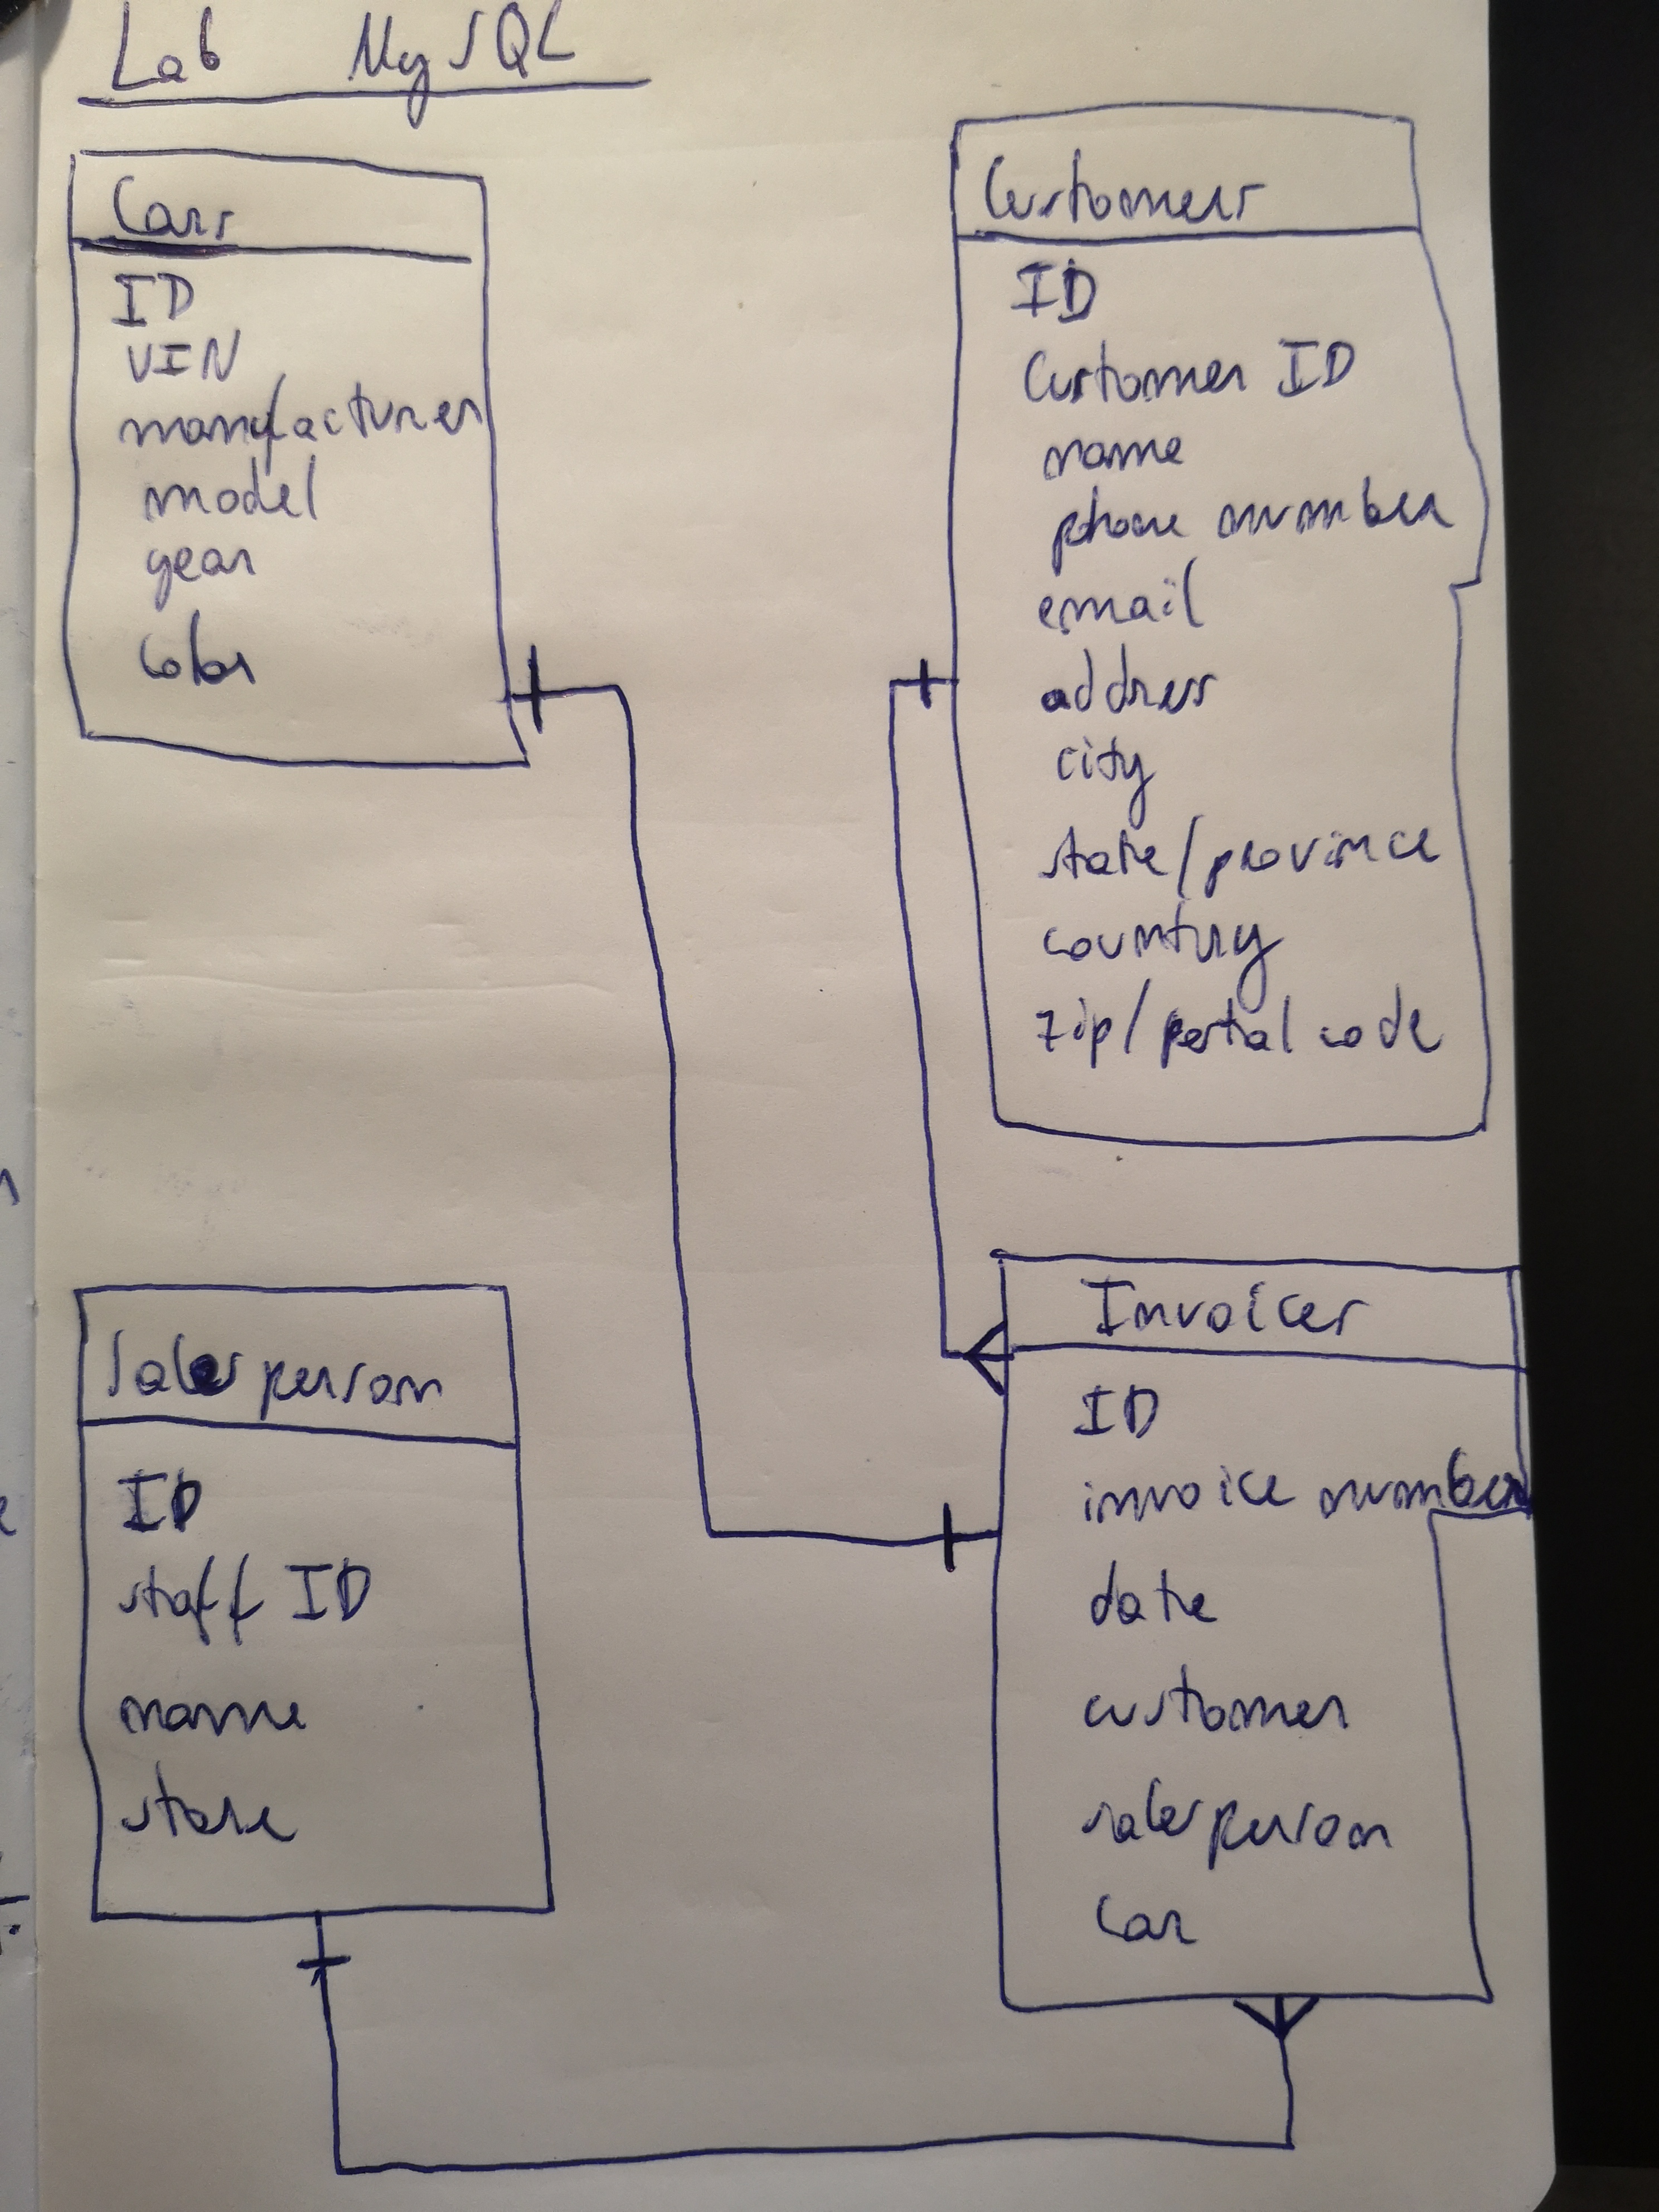 Lab MySQL
Cars
ID
VIN
manufacturer
model
year
color
Customers
ID
Customer ID
name
phone number
email
address
city
state/province
country
zip/postal code
Salesperson
ID
staff ID
name
store
Invoices
ID
invoice number
date
customer
salesperson
car